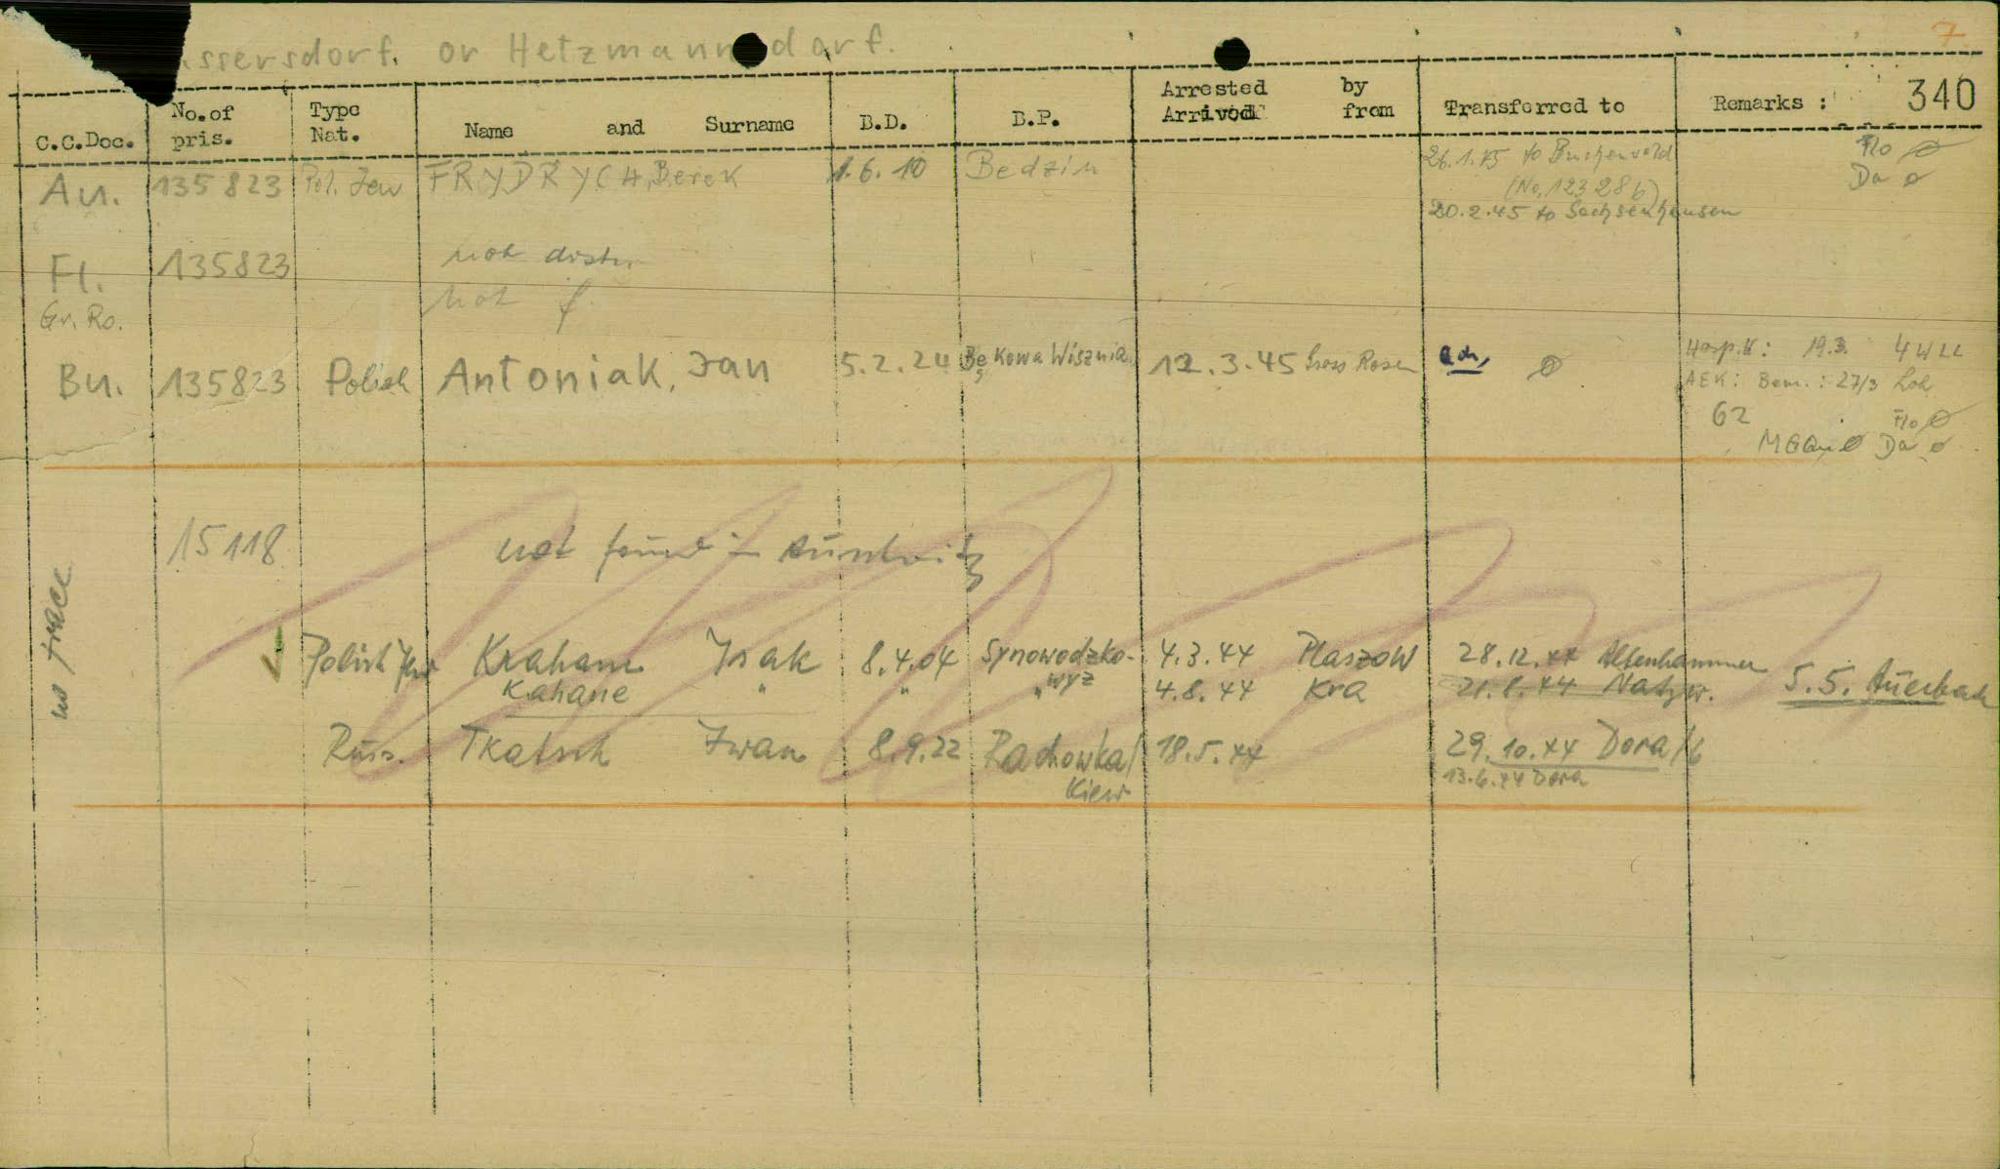 7
ssersdorf. or Hetzmannsdorf.
340
C.C.Doc. No.of pris. Type Nat. Name and Surname B.D. B.P. Arrested by Arrived from Transferred to Remarks :
Au. 135823 Pol. Jew FRYDRYCH, Berek 1.6.10 Bedzin 26.1.45 to Buchenwald Flo
(No. 123286) Da
20.2.45 to Sachsenhausen
Fl. 135823 not distr.
Gr. Ro. not f.
Bu. 135823 Polish Antoniak, Jan 5.2.24 Kowa Wisznia 12.3.45 Gross Rosen Hosp.K: 19.3.
AEK: Bem.: 27/3
62 Flo
Da
15118 not found in Auschwitz
no trace
Polish Jew Krahane Isak 8.4.04 Synowodzko- 4.3.44 Plaszow 28.12.44 Altenhammer
Kahane " " " wyz 4.8.44 Kra 21.8.44 Natzw. 5.5. Auerbach
Russ. Tkatsch Iwan 8.9.22 Rachowka/ 18.5.44 29.10.44 Dora/6
Kiew 13.6.44 Dora